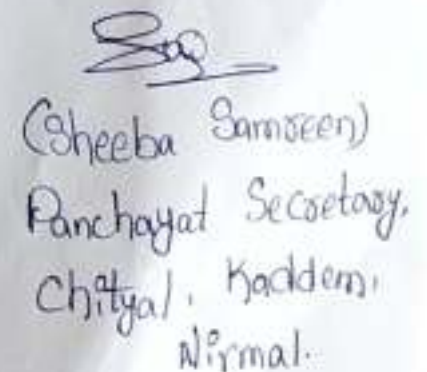 (Sheeba Samreen)
Panchayat Secretary,
Chityal, Kaddem,
Nirmal.